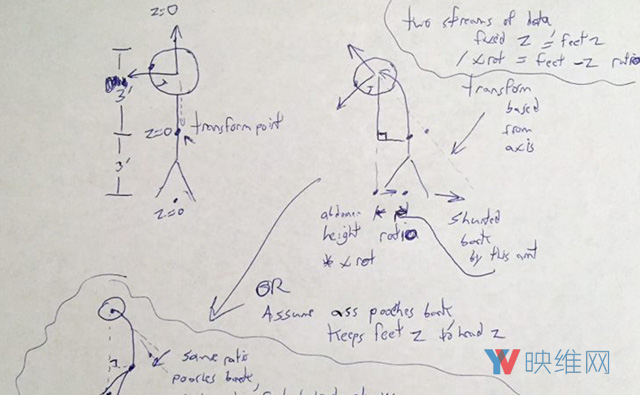 z=0
3'
3'
z=0
transform point
z=0
two streams of data
fixed z = feet z
/ xrot = feet -z ratio
transform
based
from
axis
abdomen
height ratio
* xrot
shunted
back
by this amt
OR
Assume ass pooches back
Keeps feet z to head z
same ratio
pooches back,
YV 映维网